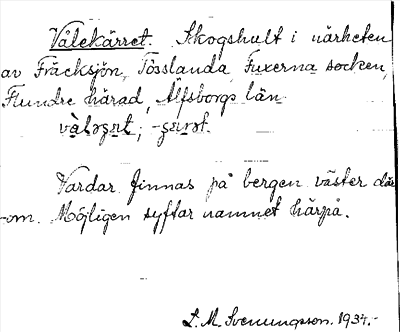 Vålekärret. Skogshult i närheten
av Fräcksjön, Tösslanda, Fuxerna socken,
Flundre härad, Älfsborgs län
Vardar finnas på bergen väster där
-om. Möjligen syftar namnet härpå.
L. M. Svenungsson. 1934.-